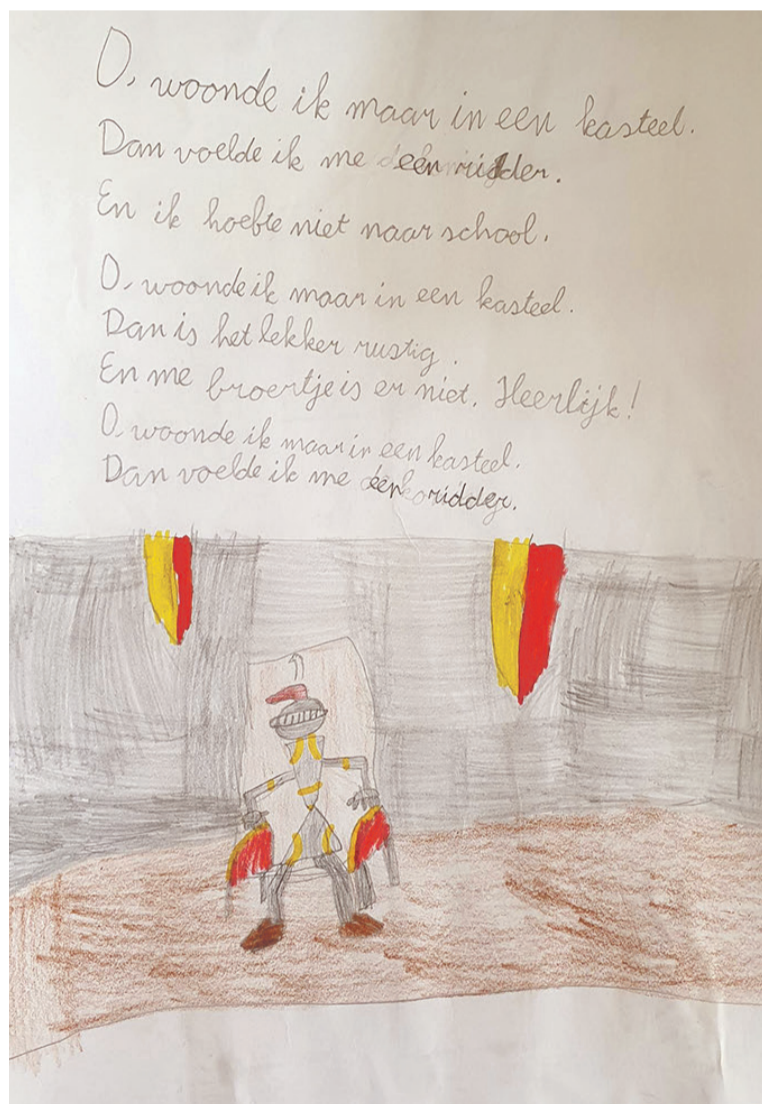 O, woonde ik maar in een kasteel.
Dan voelde ik me een ridder.
En ik hoefte niet naar school.
O, woonde ik maar in een kasteel.
Dan is het lekker rustig.
En me broertje is er niet. Heerlijk!
O, woonde ik maar in een kasteel.
Dan voelde ik me een ridder.